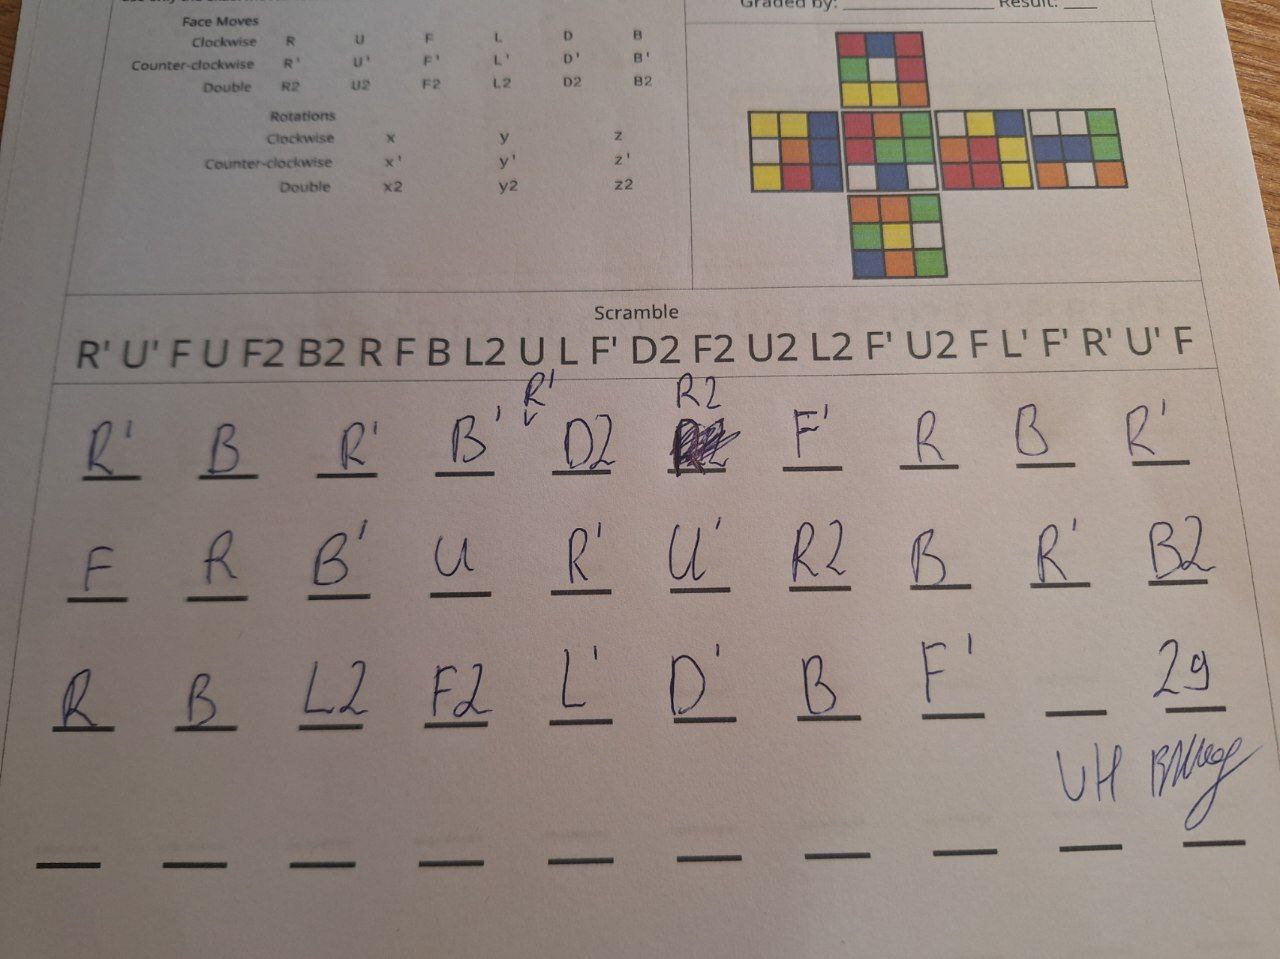 Graded by: ____________ Result: ____
Face Moves
Clockwise R U F L D B
Counter-clockwise R' U' F' L' D' B'
Double R2 U2 F2 L2 D2 B2
Rotations
Clockwise x y z
Counter-clockwise x' y' z'
Double x2 y2 z2
Scramble
R' U' F U F2 B2 R F B L2 U L F' D2 F2 U2 L2 F' U2 F L' F' R' U' F
R' R2
R' B R' B' D2 F' R B R'
F R B' U R' U' R2 B R' B2
R B L2 F2 L' D' B F' 29
UH